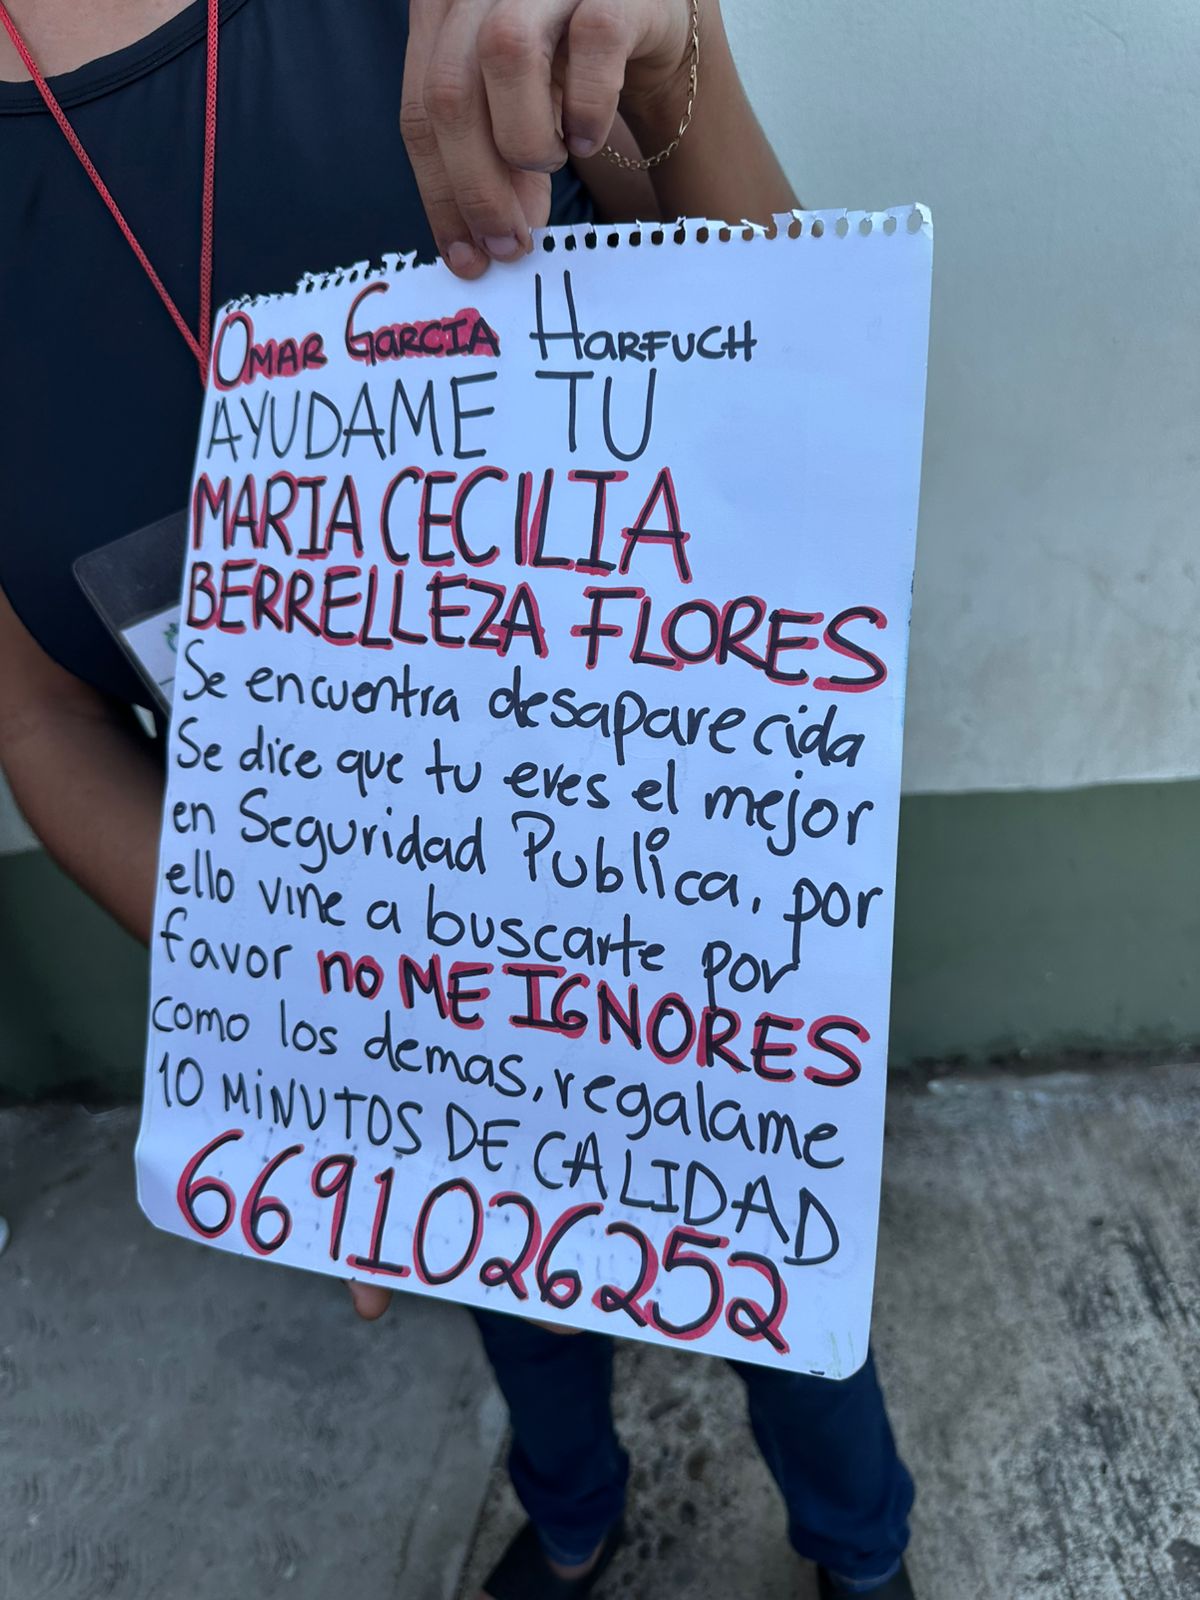 OMAR GARCIA HARFUCH
AYUDAME TU
MARIA CECILIA
BERRELLEZA FLORES
Se encuentra desaparecida
Se dice que tu eres el mejor
en Seguridad Publica, por
ello vine a buscarte por
favor no ME IGNORES
como los demas, regalame
10 MiNUTOS DE CALIDAD
6691026252